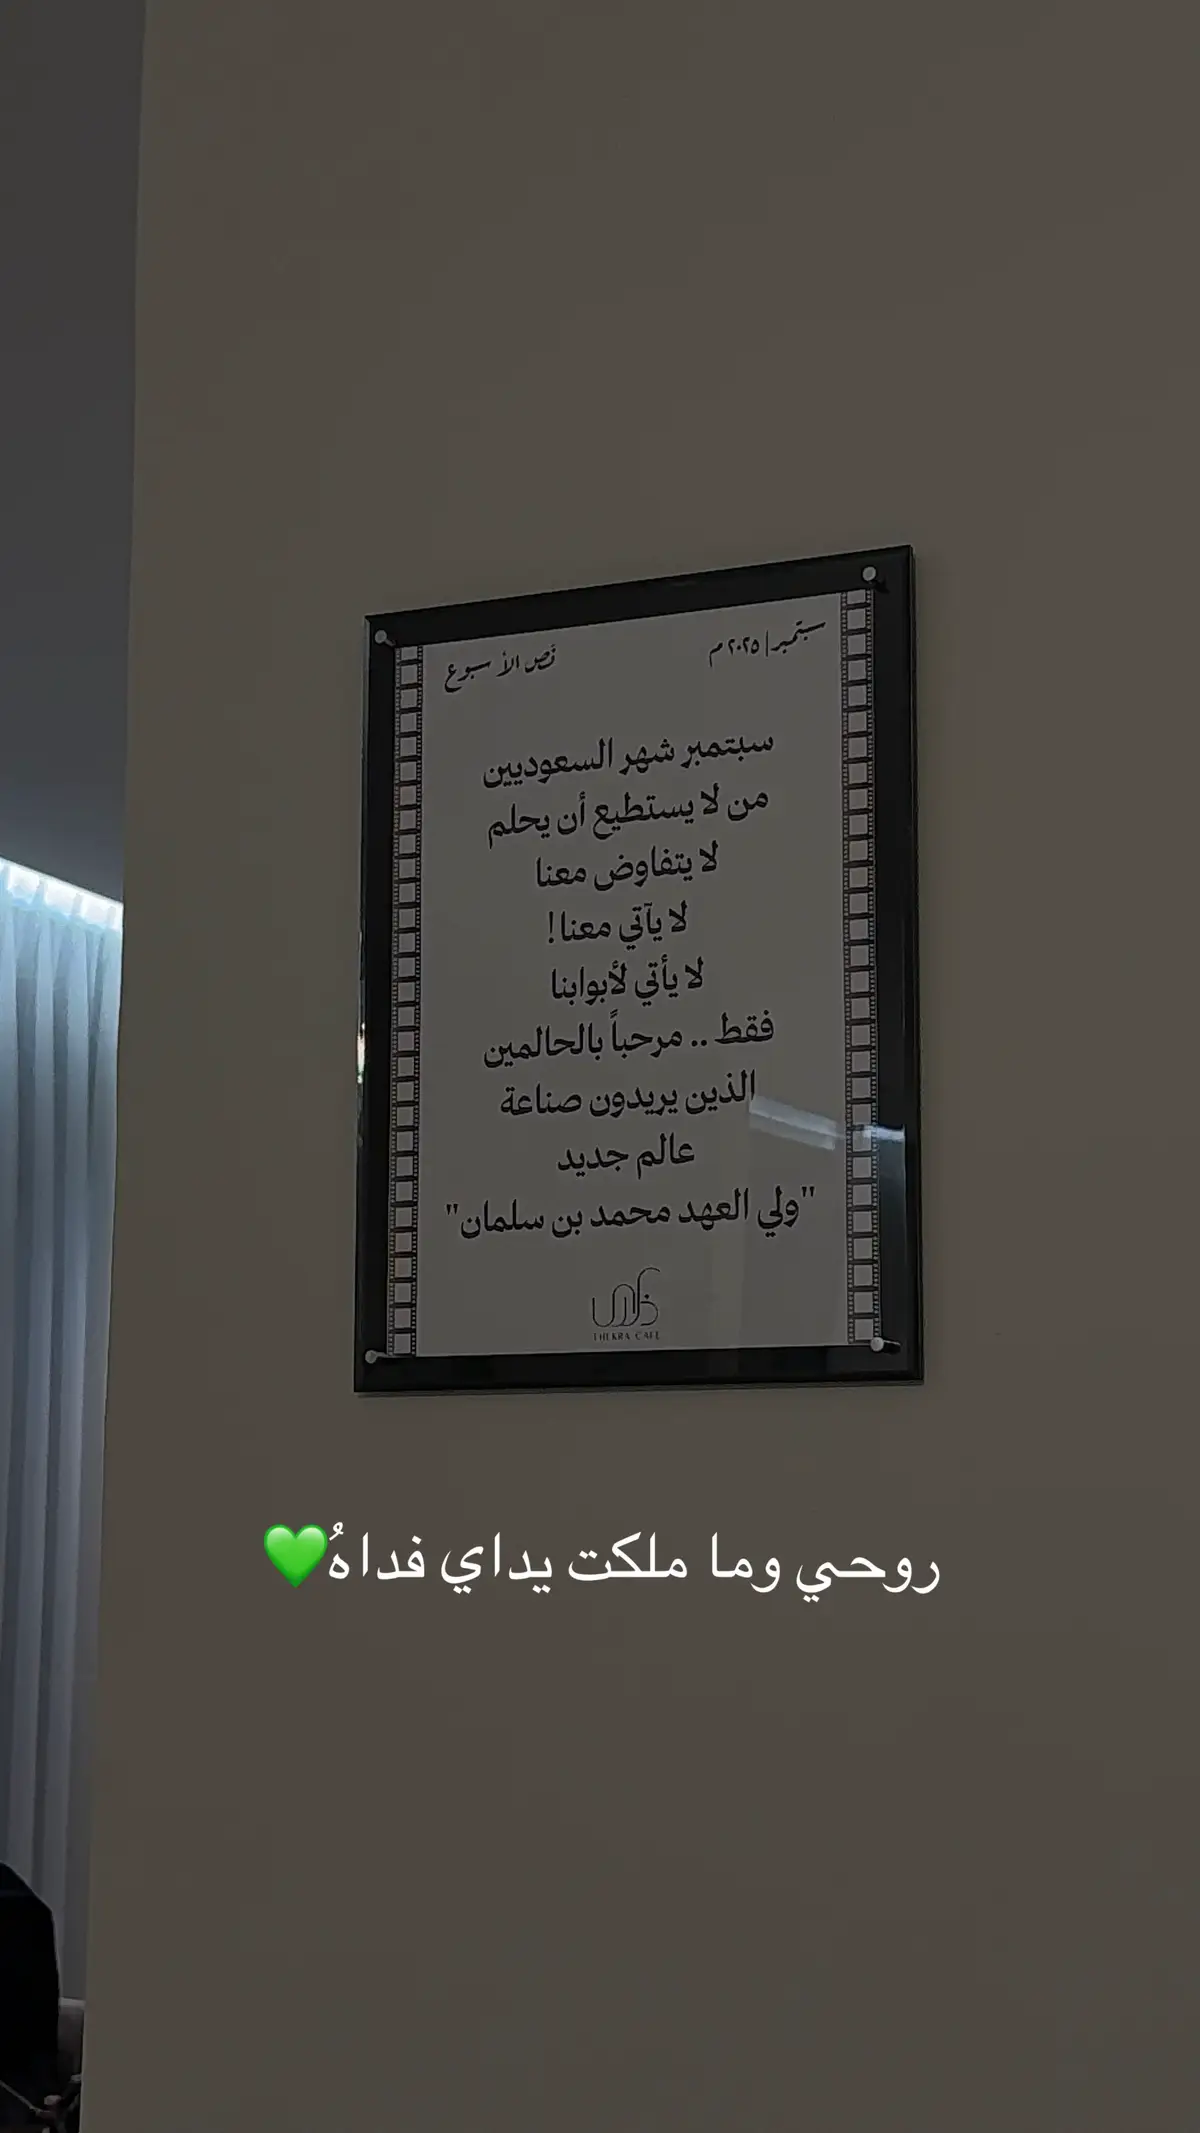 سبتمبر | ٢٠٢٥ م
نَص الأسبوع
سبتمبر شهر السعوديين
من لا يستطيع أن يحلم
لا يتفاوض معنا
لا يآتي معنا!
لا يأتي لأبوابنا
فقط .. مرحباً بالحالمين
الذين يريدون صناعة
عالم جديد
"ولي العهد محمد بن سلمان"
ذكرى
THEKRA CAFE
روحي وما ملكت يداي فداهُ💚